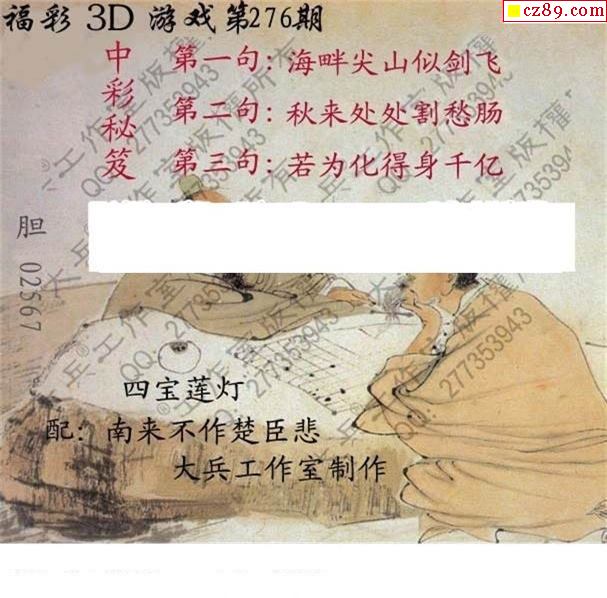 福彩 3D 游戏第276期
cz89.com
中彩秘笈
第一句：海畔尖山似剑飞
第二句：秋来处处割愁肠
第三句：若为化得身千亿
胆 02567
四宝莲灯
配：南来不作楚臣悲
大兵工作室制作
大兵工作室版權所有
QQ:277353943